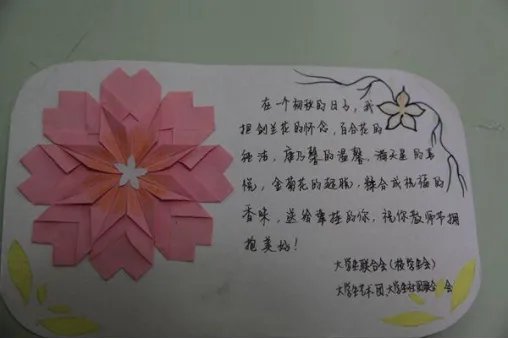 在一个初秋的日子，我
把剑兰花的怀念，百合花的
纯洁，康乃馨的温馨，满天星的喜
悦，金菊花的超脱，糅合成祝福的
香味，送给辛勤的你，祝你教师节拥
抱美好！
大学生联合会（校学生会）
大学生艺术团、大学生社团联合 会